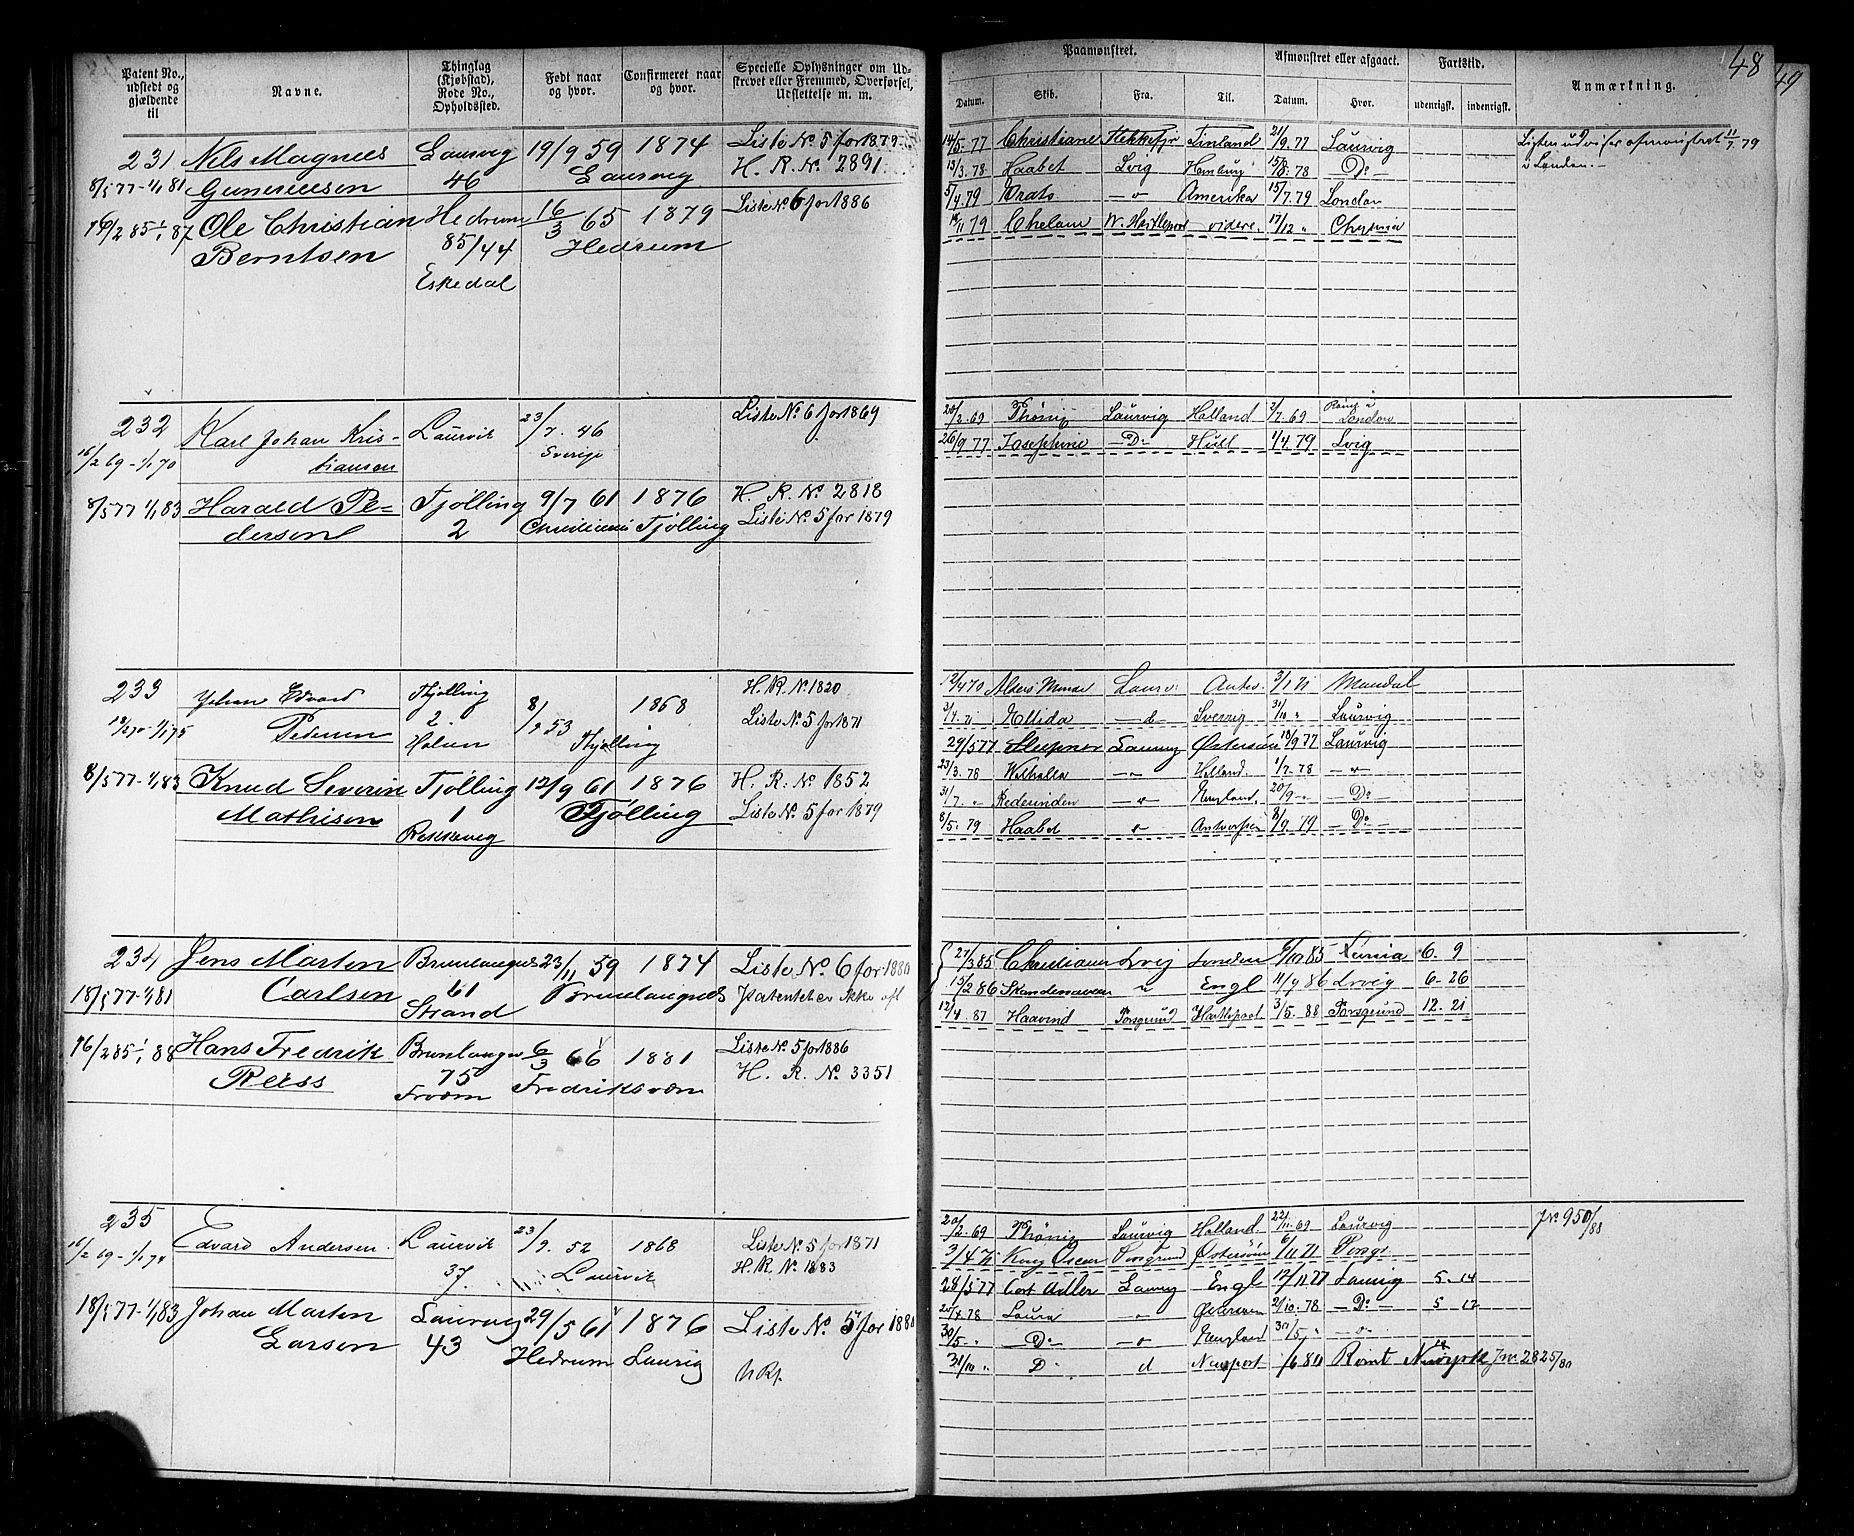 48
49
Patent No., udstedt og gjældende til
Navne.
Thinglag (Kjøbstad), Rode No., Opholdssted.
Født naar og hvor.
Confirmeret naar og hvor.
Specielle Oplysninger om Udskrevet eller Fremmed, Overførsel, Udslettelse m. m.
Paamønstret.
Afmønstret eller afgaaet.
Fartstid.
Anmærkning.
Datum. Skib. Fra. Til. Datum. Hvor. udenrigsk. indenrigsk.
231 Nils Magnus Laurvig 19/9 59 1874 Liste No 5 for 1879
8/5 77-1/1 81 Guneriusen 46 Laurvig H. R. No 2891
16/2 85 1/1 87 Ole Christian Hedrum 16/3 65 1879 Liste No 6 for 1886
Berntsen 85/44 Hedrum
Eskedal
14/5 77 Christiane Finland 21/9 77 Laurvig
13/3 78 Haabet Lvig 15/8 78 Do
5/4 79 Erato Amerika 15/7 79 London
79 17/12
11/7 79
London
232 Karl Johan Kris- Laurvik 23/7 46 Liste No 6 for 1869
16/2 69-1/1 70 tiansen Sverige
8/5 77 1/1 83 Harald Pe- Tjølling 9/7 61 1876 H. R. No 2818
dersen 2 Tjølling Liste No 5 for 1879
20/2 69 Phønix Laurvig Holland 2/7 69 London
26/9 77 Josephine Do Hull 1/4 79 Lvig
233 Johan Edvard Thjølling 8/9 53 1868 H. R. No 1820
1/1 75 Pedersen 2 Thjølling Liste No 5 for 1871
8/5 77-1/1 83 Knud Severin Tjølling 12/9 61 1876 H. R. No 1852
Mathisen 1 Tjølling Liste No 5 for 1879
12/4 70 Laurv. Antw. 3/1 71 Mandal
Sverrig Laurvig
29/5 77 Sleipner 18/9 77 Laurvig
23/3 78 Walhalla Holland 1/7 78
31/7 England 20/9 Do
8/5 79 Haabet Antwerpen 8/9 79 Do
234 Jens Marten Brunlangnes 23/11 59 1874 Liste No 6 for 1880
18/5 77-1/1 81 Carlsen 61 Brunlangnes Patentet er ikke afl
Strand
16/2 85 1/1 88 Hans Fredrik Brunlangnes 6/3 66 1881 Liste No 5 for 1886
Reiss 75 Fredriksværn H. R. No 3351
Frværn
27/3 85 Lvig London 85 6. 9
15/2 86 Engl 11/9 86 Lrvig 6. 26
12/4 87 Haavind Porsgrund Hartlepool 3/5 88 Porsgrund 12. 21
235 Edvard Andersen Laurvik 23/9 52 1868 Liste No 5 for 1871
16/2 69-1/1 74 37 Laurvik H. R. No 1883
18/5 77-1/1 83 Johan Marten Laurvig 29/5 61 1876 Liste No 5 for 1880
Larsen 43 Hedrum Laurvig
20/2 69 Phønix Laurvig Holland 22/11 69 Laurvig Jno 950/83
3/4 71 Kong Oscar Porsgrund Østersøen 6/11 71 Porsgr
28/5 77 Cort Adler Laurvig Engl 12/11 77 Laurvig 5. 14
20/4 78 Laura Østersøen 2/10 78 Do 5 12
30/5 Do England 30/5
31/10 D d Newport 1/6 80 Rømt Newyork Jno 2825/80